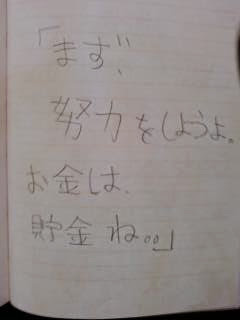 「まず、
努力をしようよ。
お金は、
貯金ね。。」